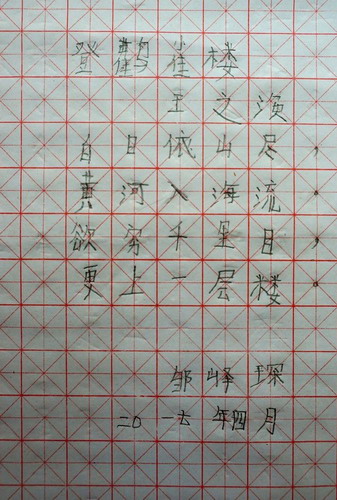 登鹳雀楼
王之涣
白日依山尽，
黄河入海流。
欲穷千里目，
更上一层楼。
邹峄琛
二0一七年四月